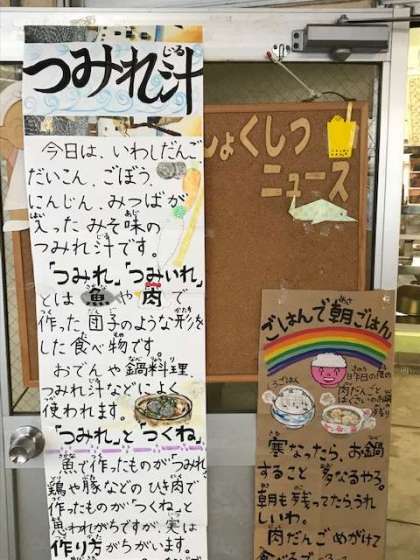 つみれ汁
じる
今日は、いわしだんご、
だいこん、ごぼう、
にんじん、みつばが
入ったみそ味の
つみれ汁です。
「つみれ」「つみいれ」
とは魚や肉で
作った団子のような形を
した食べ物です。
おでんや鍋料理、
つみれ汁などによく
使われます。
「つみれ」と「つくね」
魚で作ったものが「つみれ」
鶏や豚などのひき肉で
作ったものが「つくね」と
思われがちですが、実は
作り方がちがいます。
しょくしつ
ニュース
ごはんで朝ごはん
昨日の夜の
肉だんごと
はくさいのお鍋
の残り
白ごはん
寒なったら、お鍋
すること多なるやろ。
朝も残ってたらうれ
しいわ。
肉だんごめがけて